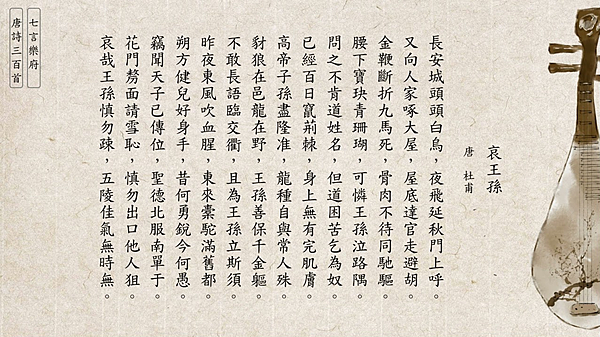 哀王孫
唐 杜甫
長安城頭頭白烏，夜飛延秋門上呼。
又向人家啄大屋，屋底達官走避胡。
金鞭斷折九馬死，骨肉不待同馳驅。
腰下寶玦青珊瑚，可憐王孫泣路隅。
問之不肯道姓名，但道困苦乞為奴。
已經百日竄荊棘，身上無有完肌膚。
高帝子孫盡隆準，龍種自與常人殊。
豺狼在邑龍在野，王孫善保千金軀。
不敢長語臨交衢，且為王孫立斯須。
昨夜東風吹血腥，東來橐駝滿舊都。
朔方健兒好身手，昔何勇銳今何愚。
竊聞天子已傳位，聖德北服南單于。
花門剺面請雪恥，慎勿出口他人狙。
哀哉王孫慎勿疎，五陵佳氣無時無。
七言樂府
唐詩三百首